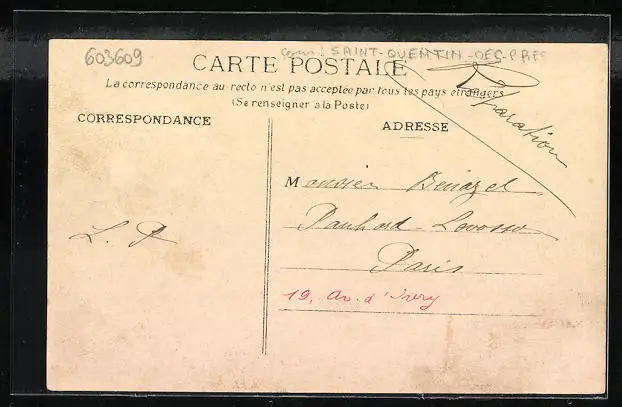 603609
com: SAINT-QUENTIN-DES-PRES
CARTE POSTALE
La correspondance au recto n'est pas acceptée par tous les pays étrangers
(Se renseigner à la Poste)
Réparation
CORRESPONDANCE
ADRESSE
Monsieur
L. P
Panhard-Levassor
Paris
19, av. d'Ivry